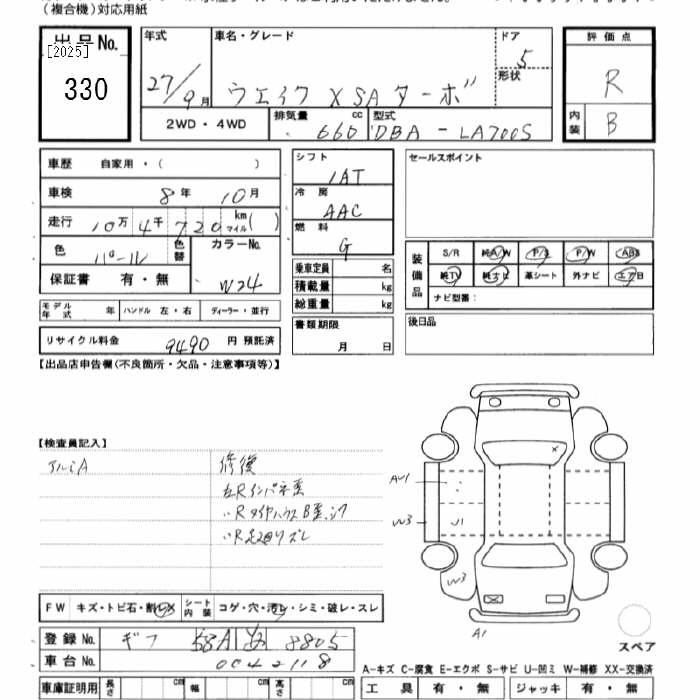 (複合機)対応用紙
出品No.
[2025]
330
年式
27/9月
車名・グレード
ウェイク X SA ターボ
ドア
5
形状
2WD・4WD
排気量
660 cc
型式
DBA-LA700S
評価点
R
内装
B
車歴 自家用・( )
車検 8年 10月
走行 10万 4千 720 km マイル( )
色 パール
色替
カラーNo.
W24
保証書 有・無
モデル年式 年 ハンドル 左・右 ディーラー・並行
リサイクル料金 9490 円 預託済
シフト
IAT
冷房
AAC
燃料
G
乗車定員 名
積載量 kg
総重量 kg
書類期限
月 日
セールスポイント
装備品
S/R 純A/W P/S P/W ABS
純TV 純ナビ 革シート 外ナビ エアB
ナビ型番:
後日品
【出品店申告欄(不良箇所・欠品・注意事項等)】
【検査員記入】
アルミA
修復
左Rインパネ歪
〃RタイヤハウスB歪、シワ
〃R足廻りズレ
AU1
W3
U1
W3
A1
X
スペア
FW キズ・トビ石・割レX
シート内装 コゲ・穴・汚レ・シミ・破レ・スレ
登録No. ギフ 58A 8805
車台No. 0042118
車庫証明用 長さ cm 幅 cm 高さ cm
A-キズ C-腐食 E-エクボ S-サビ U-凹ミ W-補修 XX-交換済
工具 有・無 ジャッキ 有・無